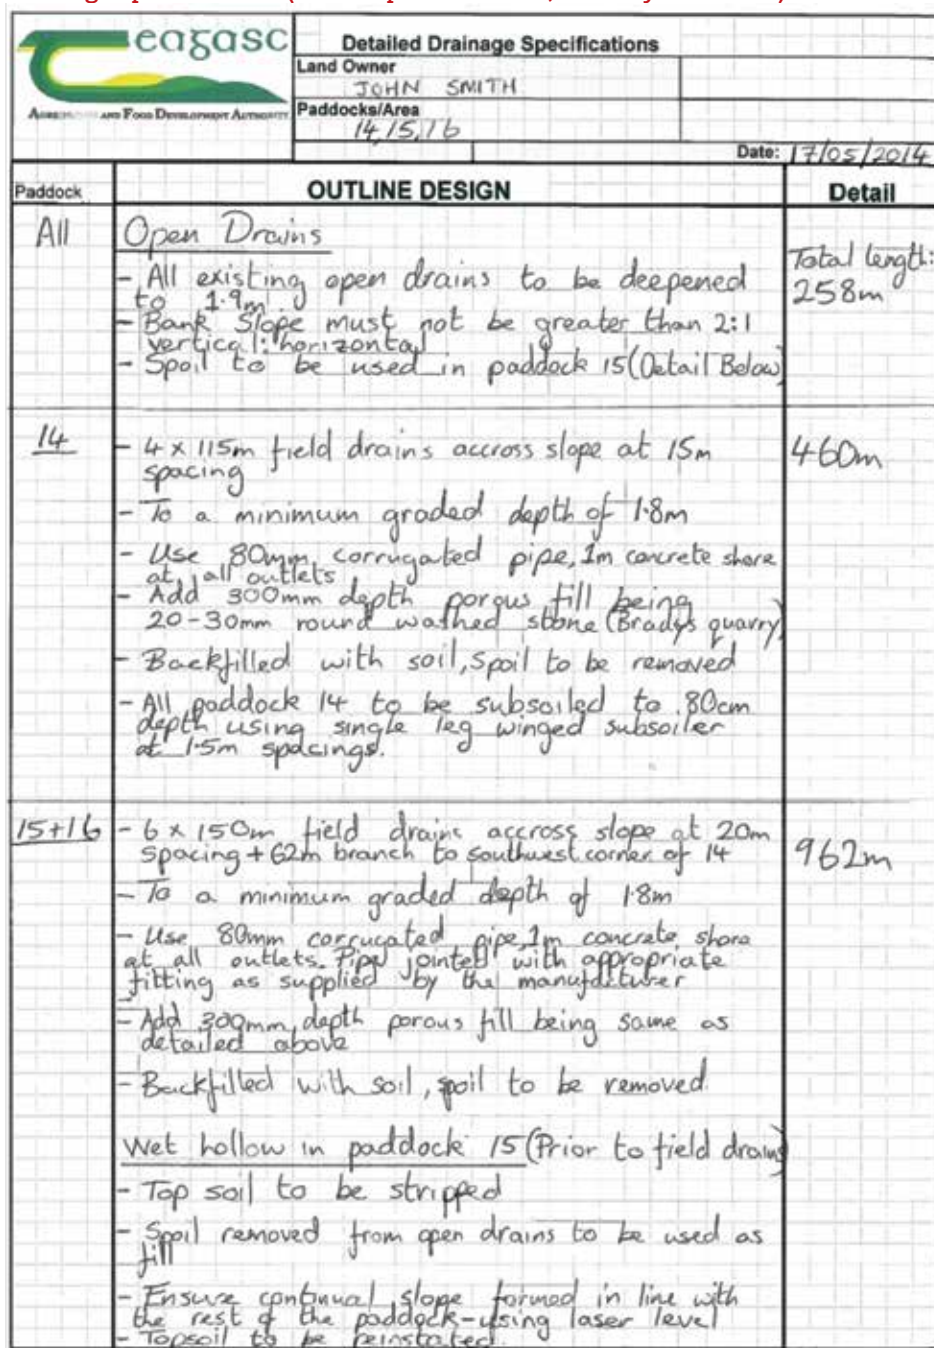 eagasc
AND FOOD DEVELOPMENT AUTHORITY
Detailed Drainage Specifications
Land Owner
JOHN SMITH
Paddocks/Area
14,15,16
Date: 17/05/2014
Paddock
OUTLINE DESIGN
Detail
All
Open Drains
- All existing open drains to be deepened
to 1.9m
- Bank Slope must not be greater than 2:1
vertical:horizontal
- Spoil to be used in paddock 15 (Detail Below)
Total length:
258m
14
- 4 x 115m field drains accross slope at 15m
spacing
- To a minimum graded depth of 1.8m
- Use 80mm corrugated pipe, 1m concrete shore
at all outlets
- Add 300mm depth porous fill being
20-30mm round washed stone (Bradys quarry)
- Backfilled with soil, spoil to be removed
- All paddock 14 to be subsoiled to 80cm
depth using single leg winged subsoiler
at 1.5m spacings.
460m
15+16
- 6 x 150m field drains accross slope at 20m
spacing + 62m branch to southwest corner of 14
- To a minimum graded depth of 1.8m
- Use 80mm corrucated pipe, 1m concrete shore
at all outlets. Pipe jointed with appropriate
fitting as supplied by the manufacturer
- Add 300mm depth porous fill being same as
detailed above
- Backfilled with soil, spoil to be removed.
962m
Wet hollow in paddock 15 (Prior to field drains)
- Top soil to be stripped
- Spoil removed from open drains to be used as
fill
- Ensure continual slope formed in line with
the rest of the paddock - using laser level
- Topsoil to be reinstated.